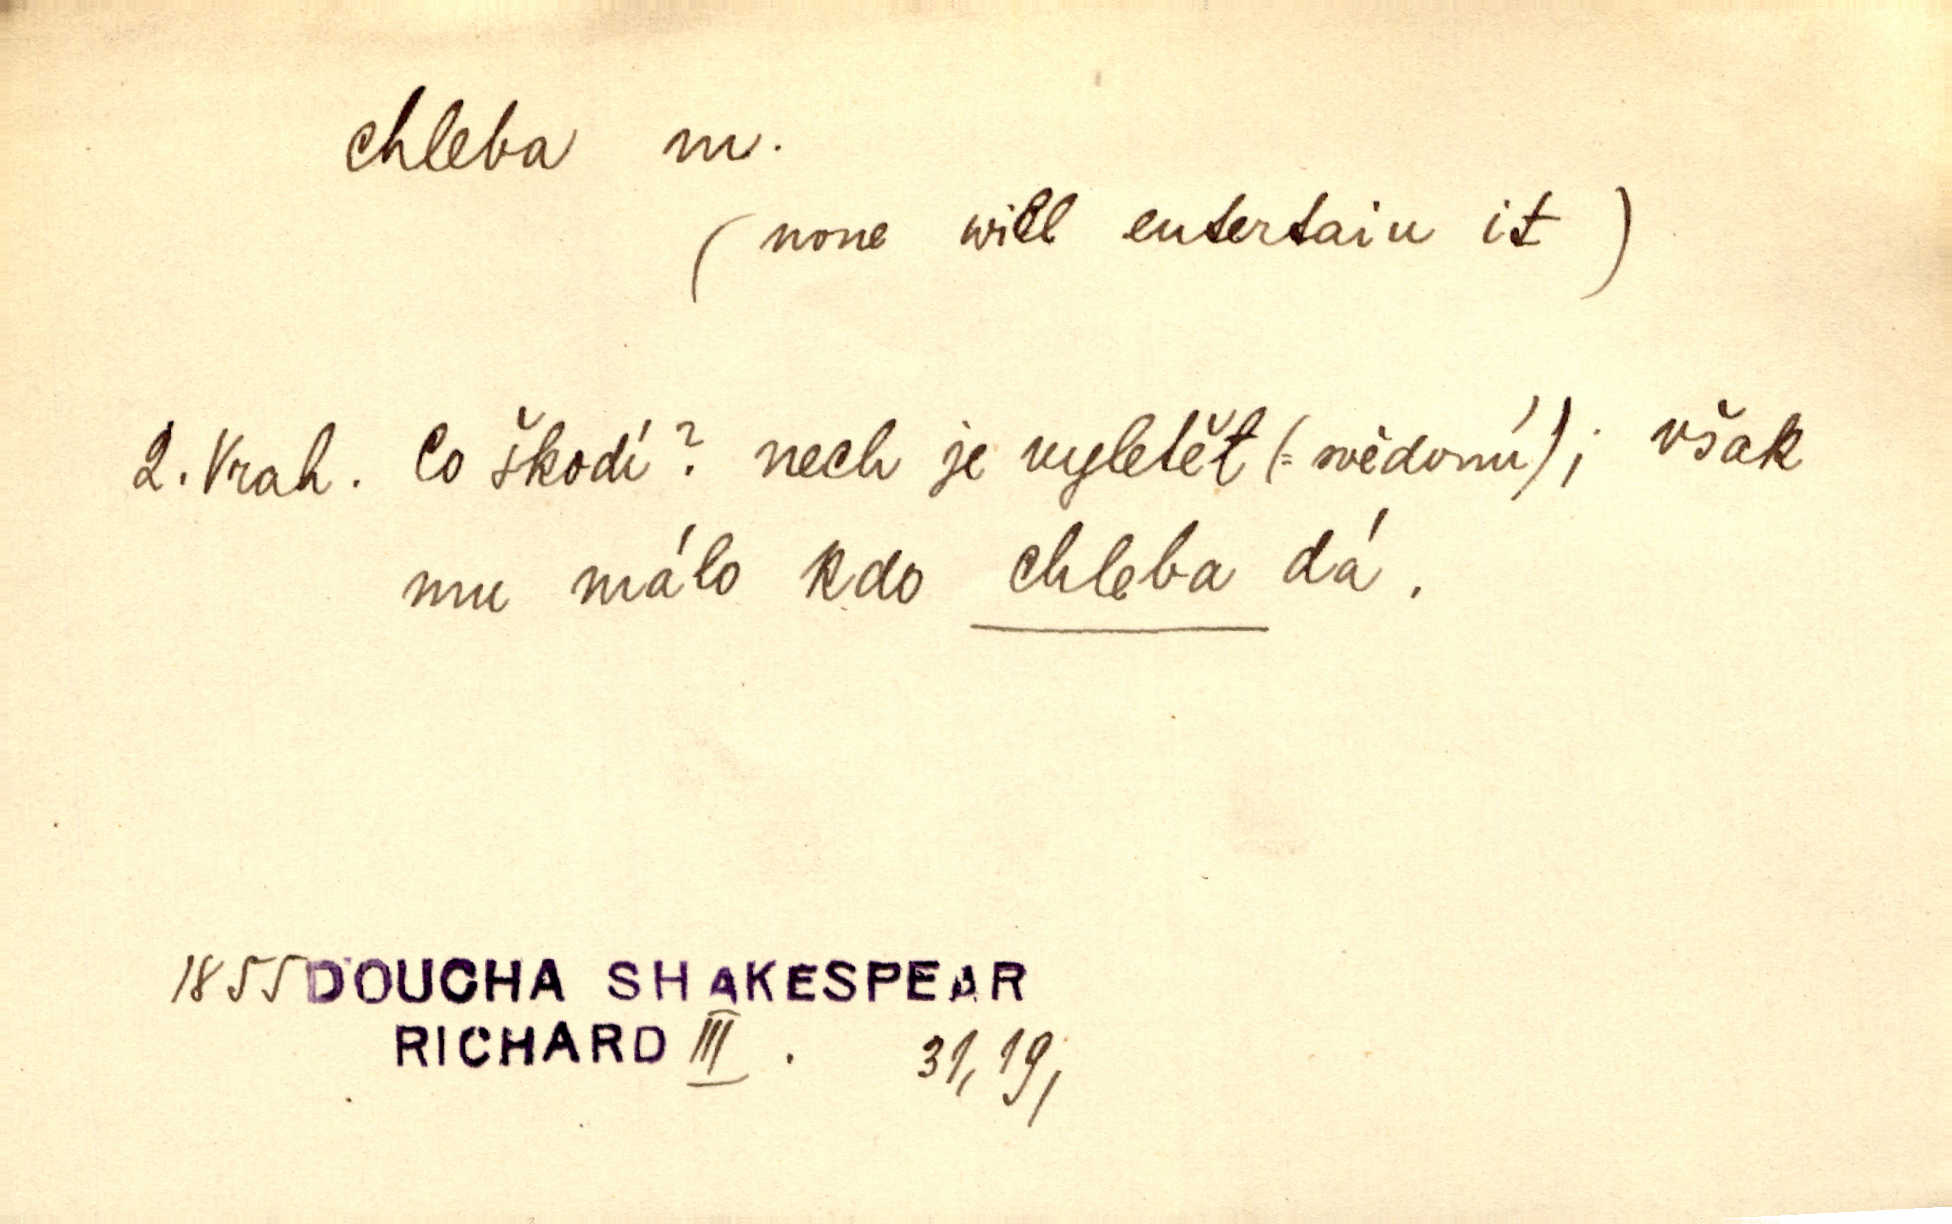 chleba m.
(none will entertain it)
2. Vrah. Co škodí? nech je vyletět (= svědomí); však
mu málo kdo chleba dá.
1855 DOUCHA SHAKESPEAR
RICHARD III. 31, 19,